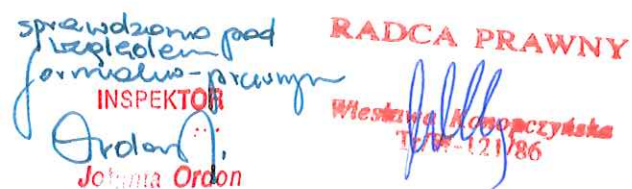 sprawdzono pod
względem
formalno-prawnym
INSPEKTOR
Ordon J.
Joanna Ordon
RADCA PRAWNY
Wiesława Konopczyńska
121/86